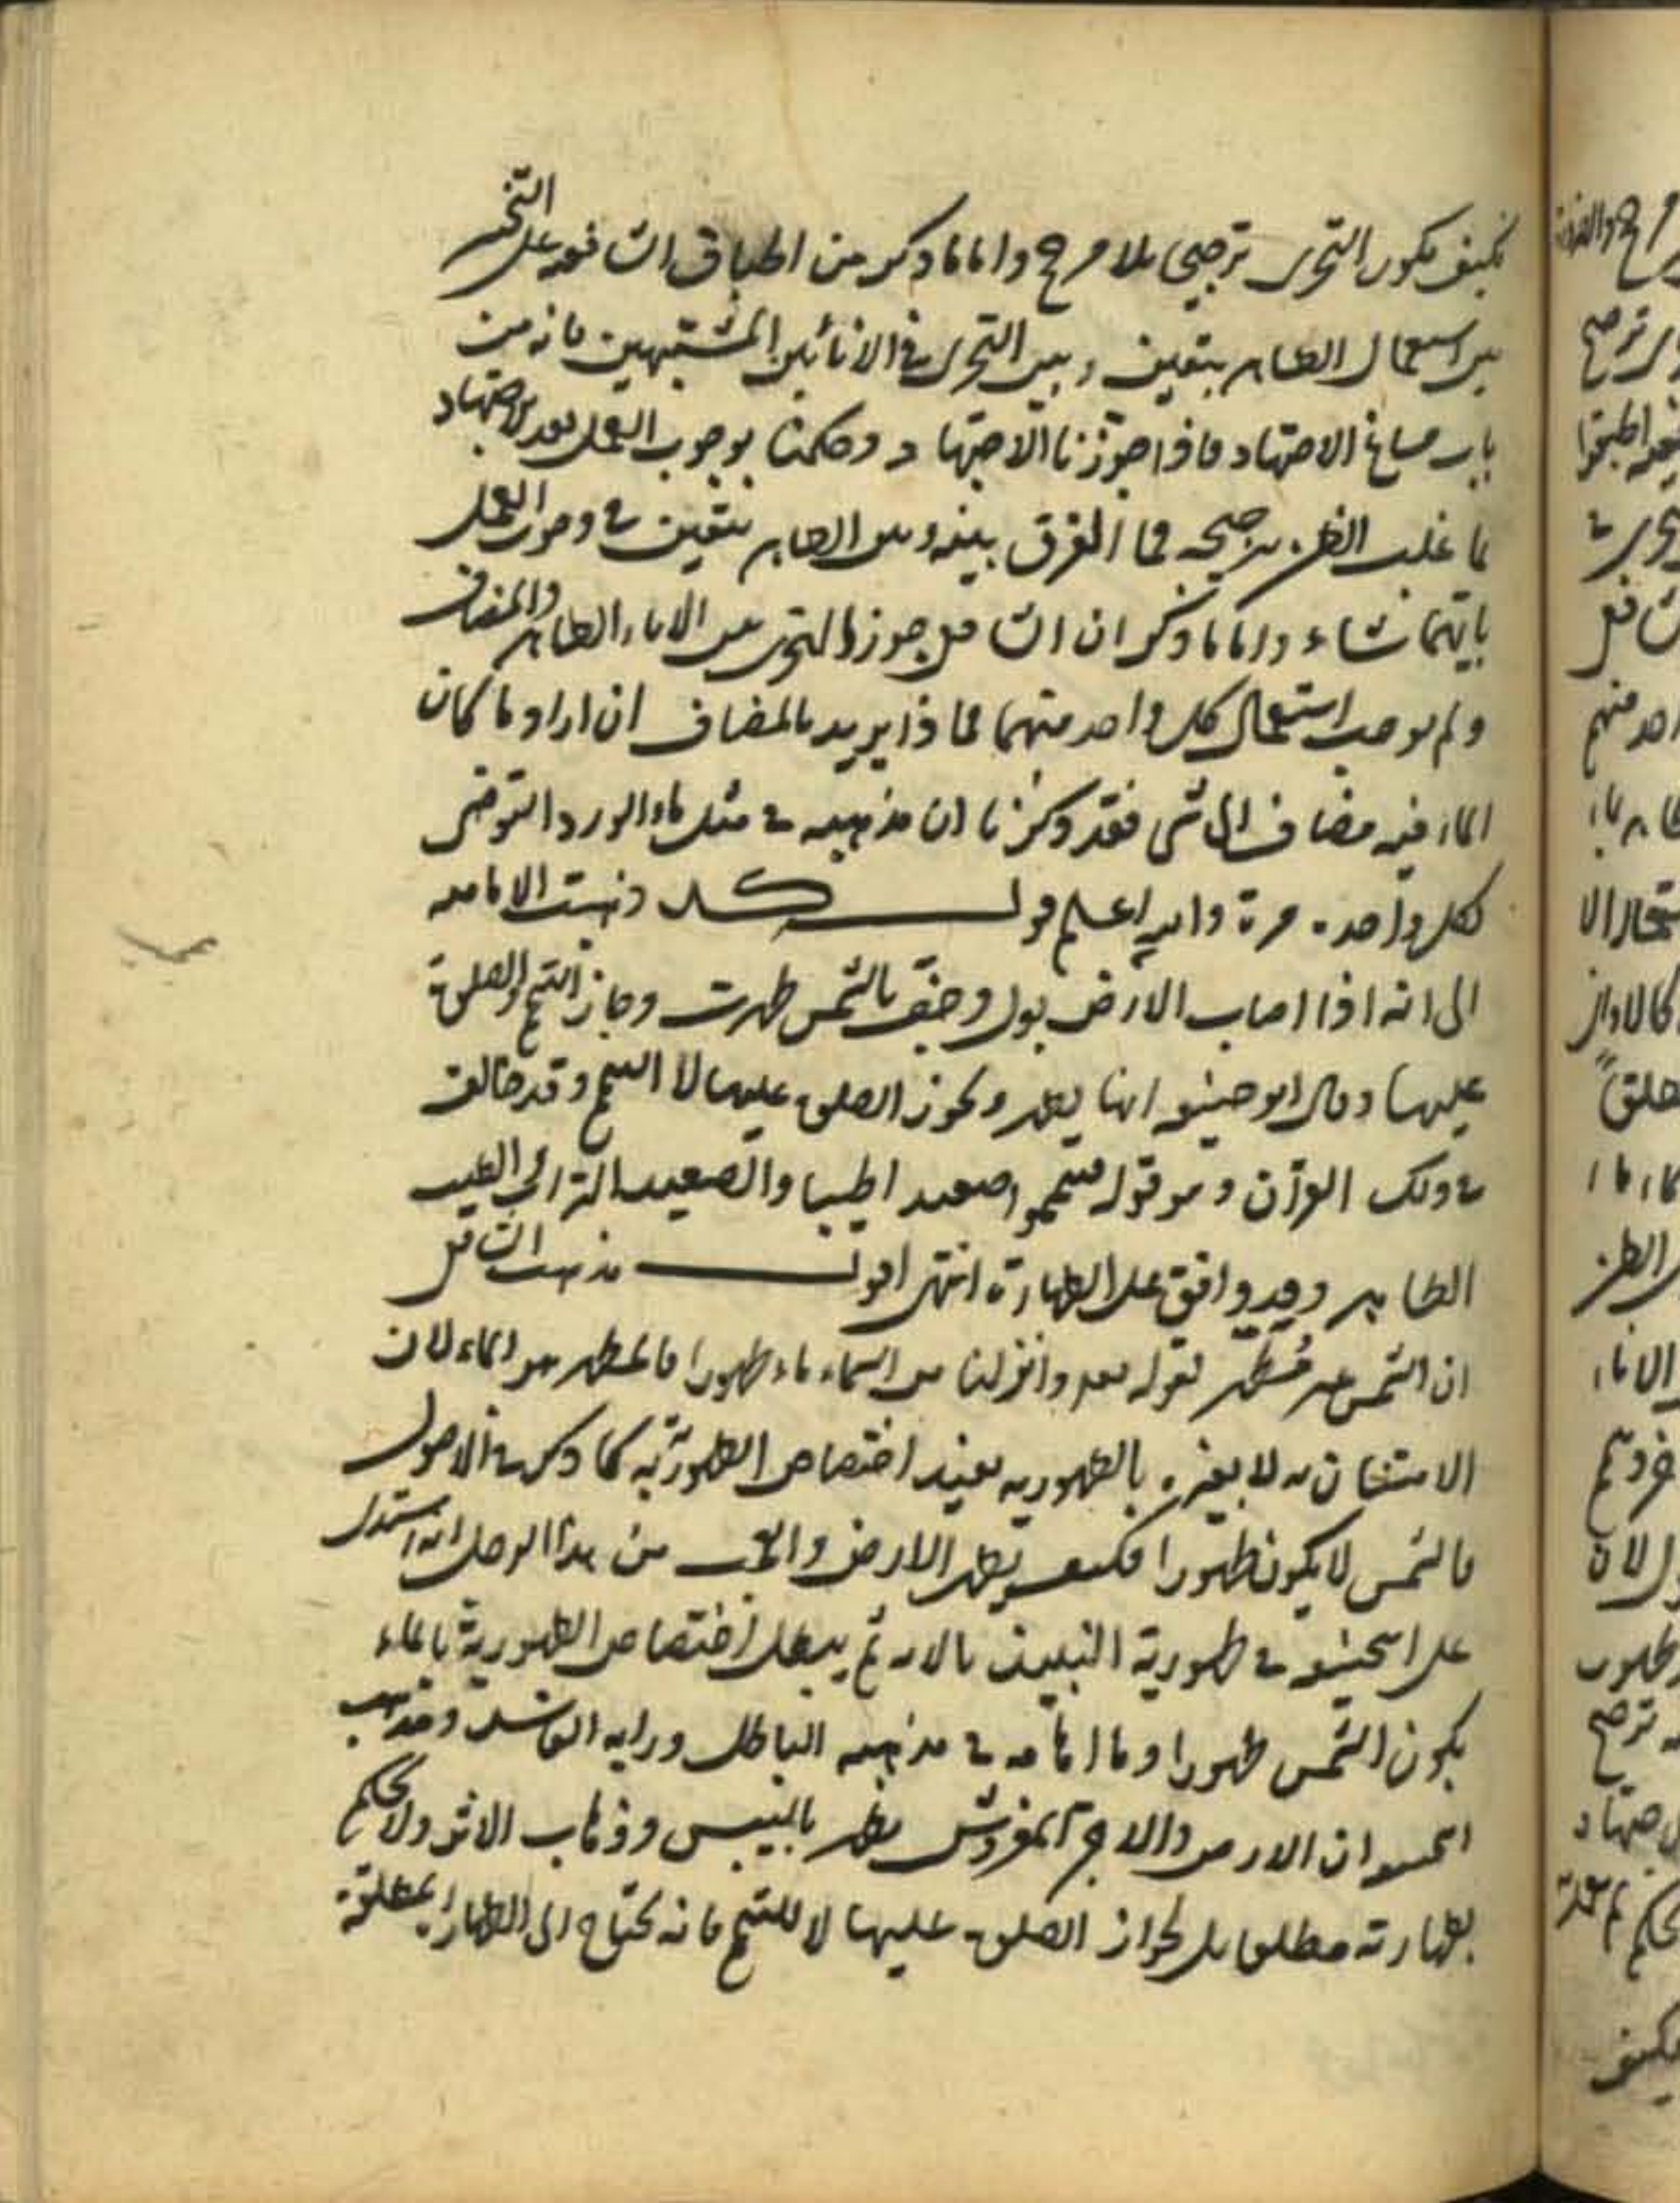 فكيف يكون التحرى ترجيحا بلا مرجح واما ما ذكر من اطباق الشافعيه على التخيير
بين استعمال الطاهر بيقين وبين التحرى في الانائين المشتبهين فانه من
باب مساغ الاجتهاد فاذا جوزنا الاجتهاد وحكمنا بوجوب العمل بعد الاجتهاد
بما غلب الظن بترجيحه فما الفرق بينه وبين الطاهر بيقين في وجوب العمل
بايهما شاء واما ما ذكر ان الشافعي جوز التحرى بين الاناء الطاهر والمضاف
ولم يوجب استعمال كل واحد منهما فما ذا يريد بالمضاف ان اراد ما كان
الماء فيه مضاف الى شى فقد ذكرنا ان مذهبه في مثل ماء الورد التوضى
بكل واحد مرة والله اعلم قوله ذهبت الاماميه
الى انه اذا اصاب الارض بول وجف بالشمس طهرت وجاز التيمم والصلوة
عليها وقال ابو حنيفه انها يطهر ويجوز الصلوة عليها لا التيمم وقد خالف
في ذلك القرآن وهو قوله فتيمموا صعيدا طيبا والصعيد التراب الطيب
الطاهر وقد وافق على الطهارة انتهى اقول مذهب الشافعي
ان الشمس غير مطهر لقوله تعالى وانزلنا من السماء ماء طهورا فالمطهر هو الماء لان
الامتنان به لا بغيره بالطهوريه يفيد اختصاص الطهوريّه به كما ذكر في الاصول
فالشمس لا يكون طهورا فكيف يطهر الارض والعجب من هذا الرجل انه استدل
على ابيحنيفه في طهورية النبيذ بالآيه ثم يبطل اختصاص الطهورية بالماء
بكون الشمس طهورا وما امامه في مذهبه الباطل ورايه الفاسد ومذهب
الحنفيه ان الارض والآجر المفروش يطهر باليبس وذهاب الاثر ولا يحكم
بطهارته مطلقا بل لجواز الصلوة عليها لا للتيمم فانه يحتاج الى الطهارة المطلقة